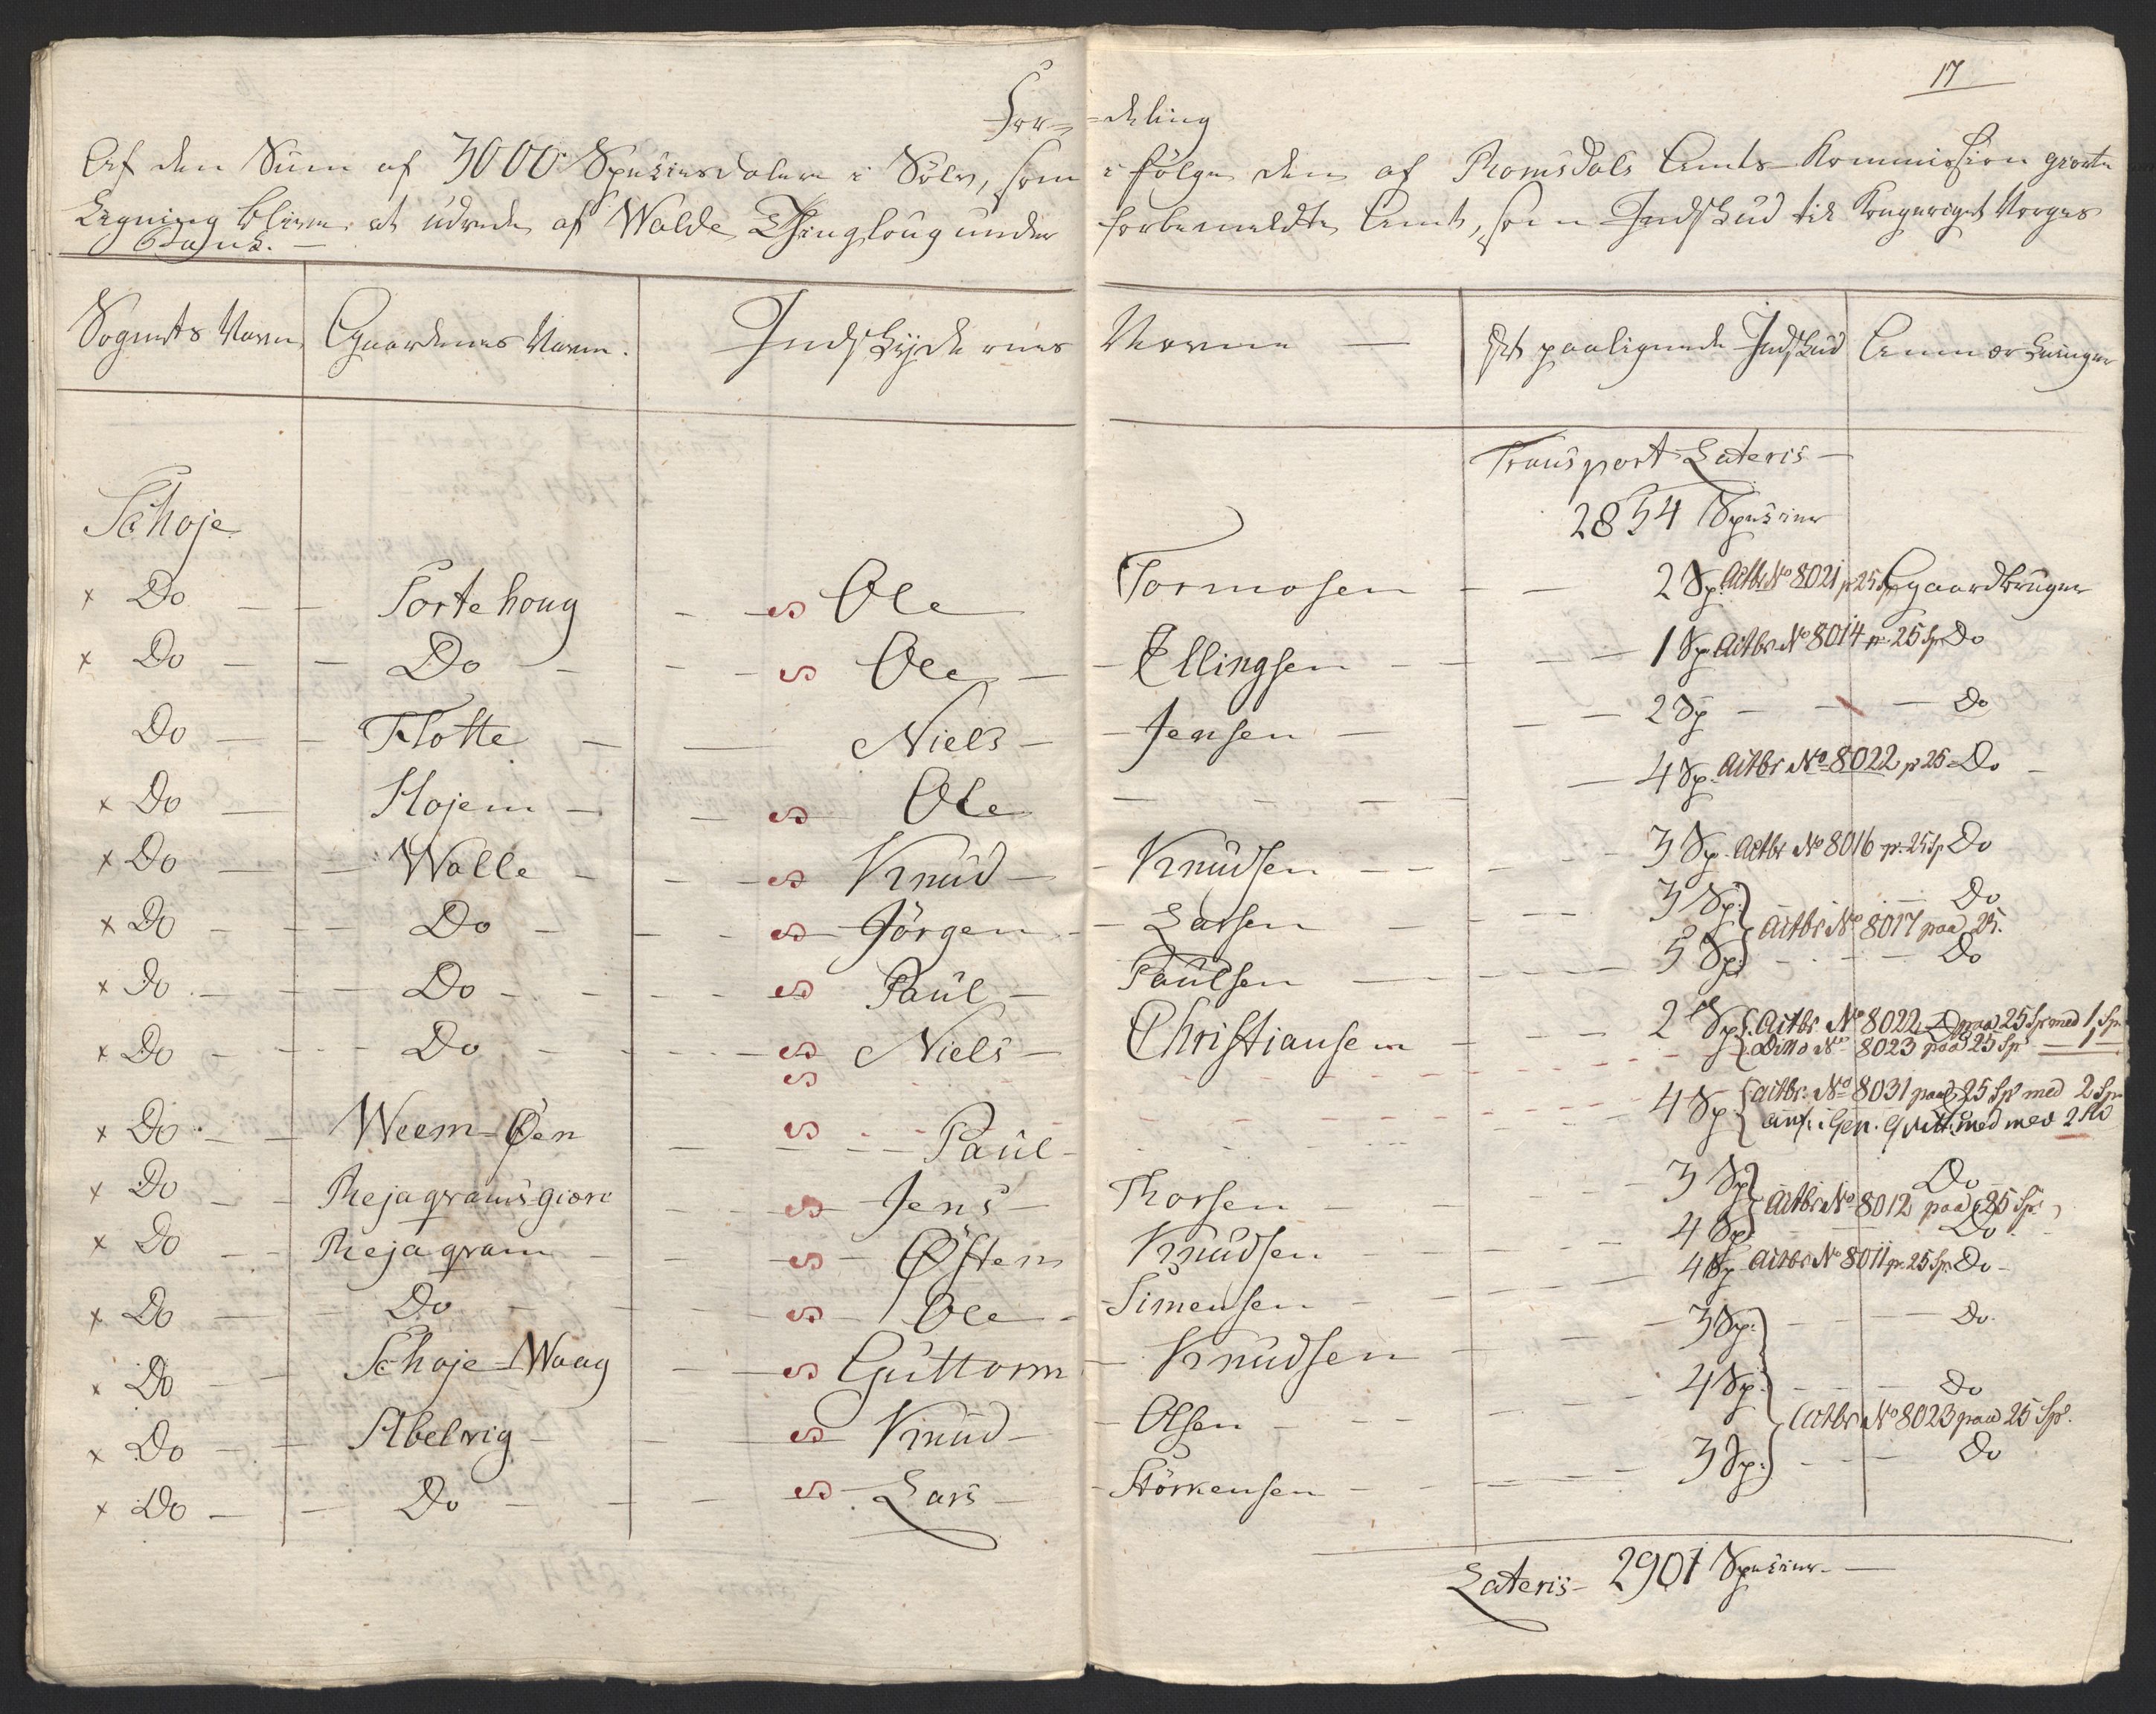 17
For= =deling
Af den Sum af 3000 Speciesdalere i Sölv, som i fölge den af Romsdals Amts-Kommission giorte
Ligning bliver at udrede af Wolde Thinglaug under forbemeldte Amt, som Indskud til Kongeriget Norges
Bank. —
Sognets Navn Gaardenes Navn. Indskydernes Navne — Det paalignede Indskud Anmærkninger
Transport Lateris —
Schoje 2854 Specier
x Do — Portehoug — s Ole Tormosen — 2 Sp. Actbr No 8021 p 25 Sp Gaardbruger
x Do — Do — s Ole — Ellingsen — 1 Sp. Actbr No 8014 pr 25 Sp Do
Do — Flotte — Niels — Jensen — 2 Sp — Do
x Do — Hojem — s Ole — 4 Sp. Actbr No 8022 p 25 Do
x Do — Wolle — s Knud — Knudsen — 3 Sp. Actbr No 8016 pr. 25 Sp Do
x Do — Do — s Jörgen — Larsen — 3 Sp. — Do
Actbr No 8017 paa 25.
x Do — Do — s Paul — Paulsen — 5 Sp. — Do
x Do — Do — s Niels — Christiansen — 2 Sp. Actbr No 8022 Do paa 25 Sp med 1 Sp.
s Ditto No 8023 paa 25 Sp — 1 —
x Do — Weem-Öen — s Paul — 4 Sp. Actbr. No 8031 paa 25 Sp med 2 Sp.
med 2 do
x Do — Rejagramsgiære s Jens — Thorsen — 3 Sp. Do
Actbr No 8012 paa 25 Sp.
x Do — Rejagram — s Östen Knudsen — 4 Sp. — Do
x Do — Do — s Ole — Simensen — 4 Sp. Actbr No 8011 pr. 25 Sp. Do
x Do — Schoje-Waag — s Guttorm — Knudsen — 3 Sp. — Do
x Do — Abelvig — s Knud — Olsen — 4 Sp. — Do
Actbr No 8023 paa 25 Sp.
x Do — Do — s Lars — Störkensen — 3 Sp. — Do
Lateris — 2901 Specier. —